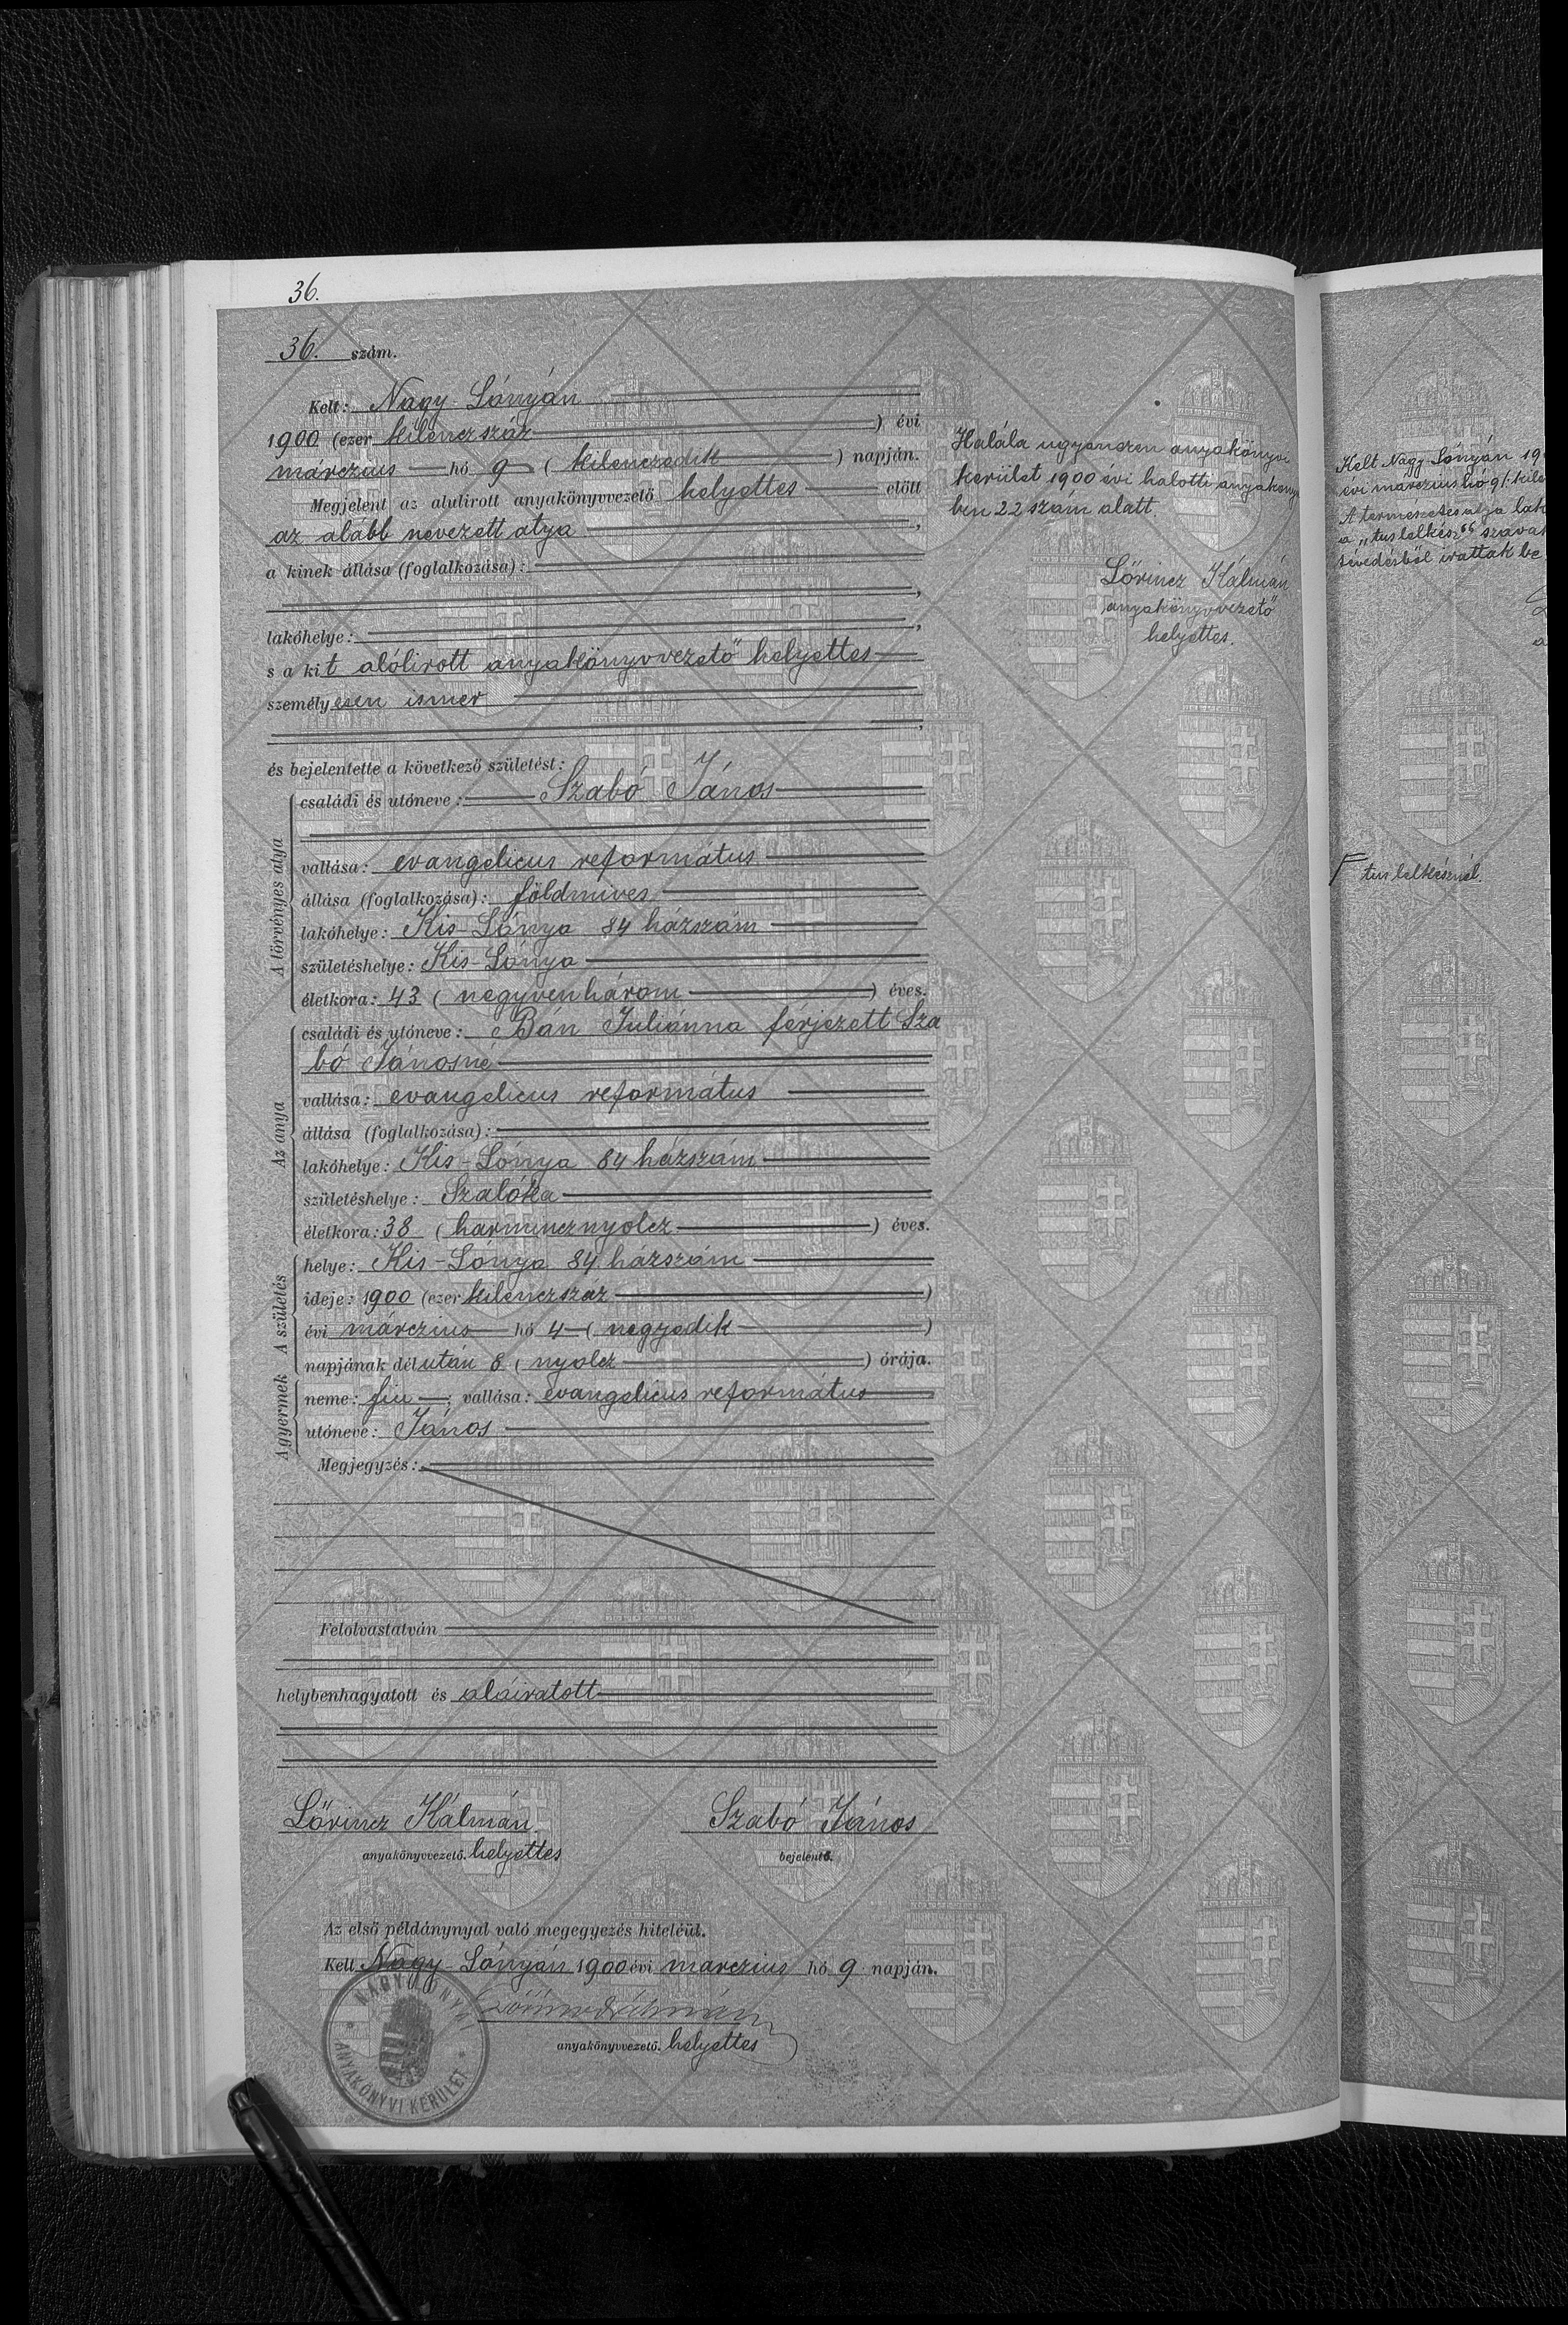 36.
36. szám.
Kelt: Nagy-Lónyán
1900 (ezer kilenczszáz ) évi
márczius hó 9 ( kilenczedik ) napján.
Megjelent az alulirott anyakönyvvezető helyettes előtt
az alább nevezett atya ,
a kinek állása (foglalkozása):
,
lakóhelye: ,
s a kit alólirott anyakönyvvezető helyettes
személyesen ismer
,
és bejelentette a következő születést:
A törvényes atya
családi és utóneve: Szabó János
vallása: evangelicus református
állása (foglalkozása): földmives
lakóhelye: Kis-Lónya 84 házszám
születéshelye: Kis-Lónya
életkora: 43 ( negyvenhárom ) éves.
Az anya
családi és utóneve: Bán Juliánna férjezett Sza
bó Jánosné
vallása: evangelicus református
állása (foglalkozása):
lakóhelye: Kis-Lónya 84 házszám
születéshelye: Szalóka
életkora: 38 ( harmincznyolcz ) éves.
A születés
helye: Kis-Lónya 84 házszám
ideje: 1900 (ezer kilenczszáz )
évi márczius hó 4 ( negyedik )
napjának délután 8 ( nyolcz ) órája.
A gyermek
neme: fiu ; vallása: evangelicus református
utóneve: János
Megjegyzés:
Felolvastatván
helybenhagyatott és aláiratott
Lőrincz Kálmán
anyakönyvvezető. helyettes
Szabó János
bejelentő.
Az első példánynyal való megegyezés hiteléül.
Kelt Nagy-Lónyán 1900 évi marczius hó 9 napján.
Lőrincz Kálmán
anyakönyvvezető. helyettes
NAGYLÓNYAI
ANYAKÖNYVI KERÜLET
Halála ugyanezen anyakönyvi
kerület 1900 évi halotti anyaköny
ben 22 szám alatt.
Lőrincz Kálmán
anyakönyvvezető
helyettes.
Kelt Nagy-Lónyán 19
évi márczius hó 9 (kile
A természetes atya lak
a „tus lelkész" szavak
tévedésből irattak be
tus lelkésznél.